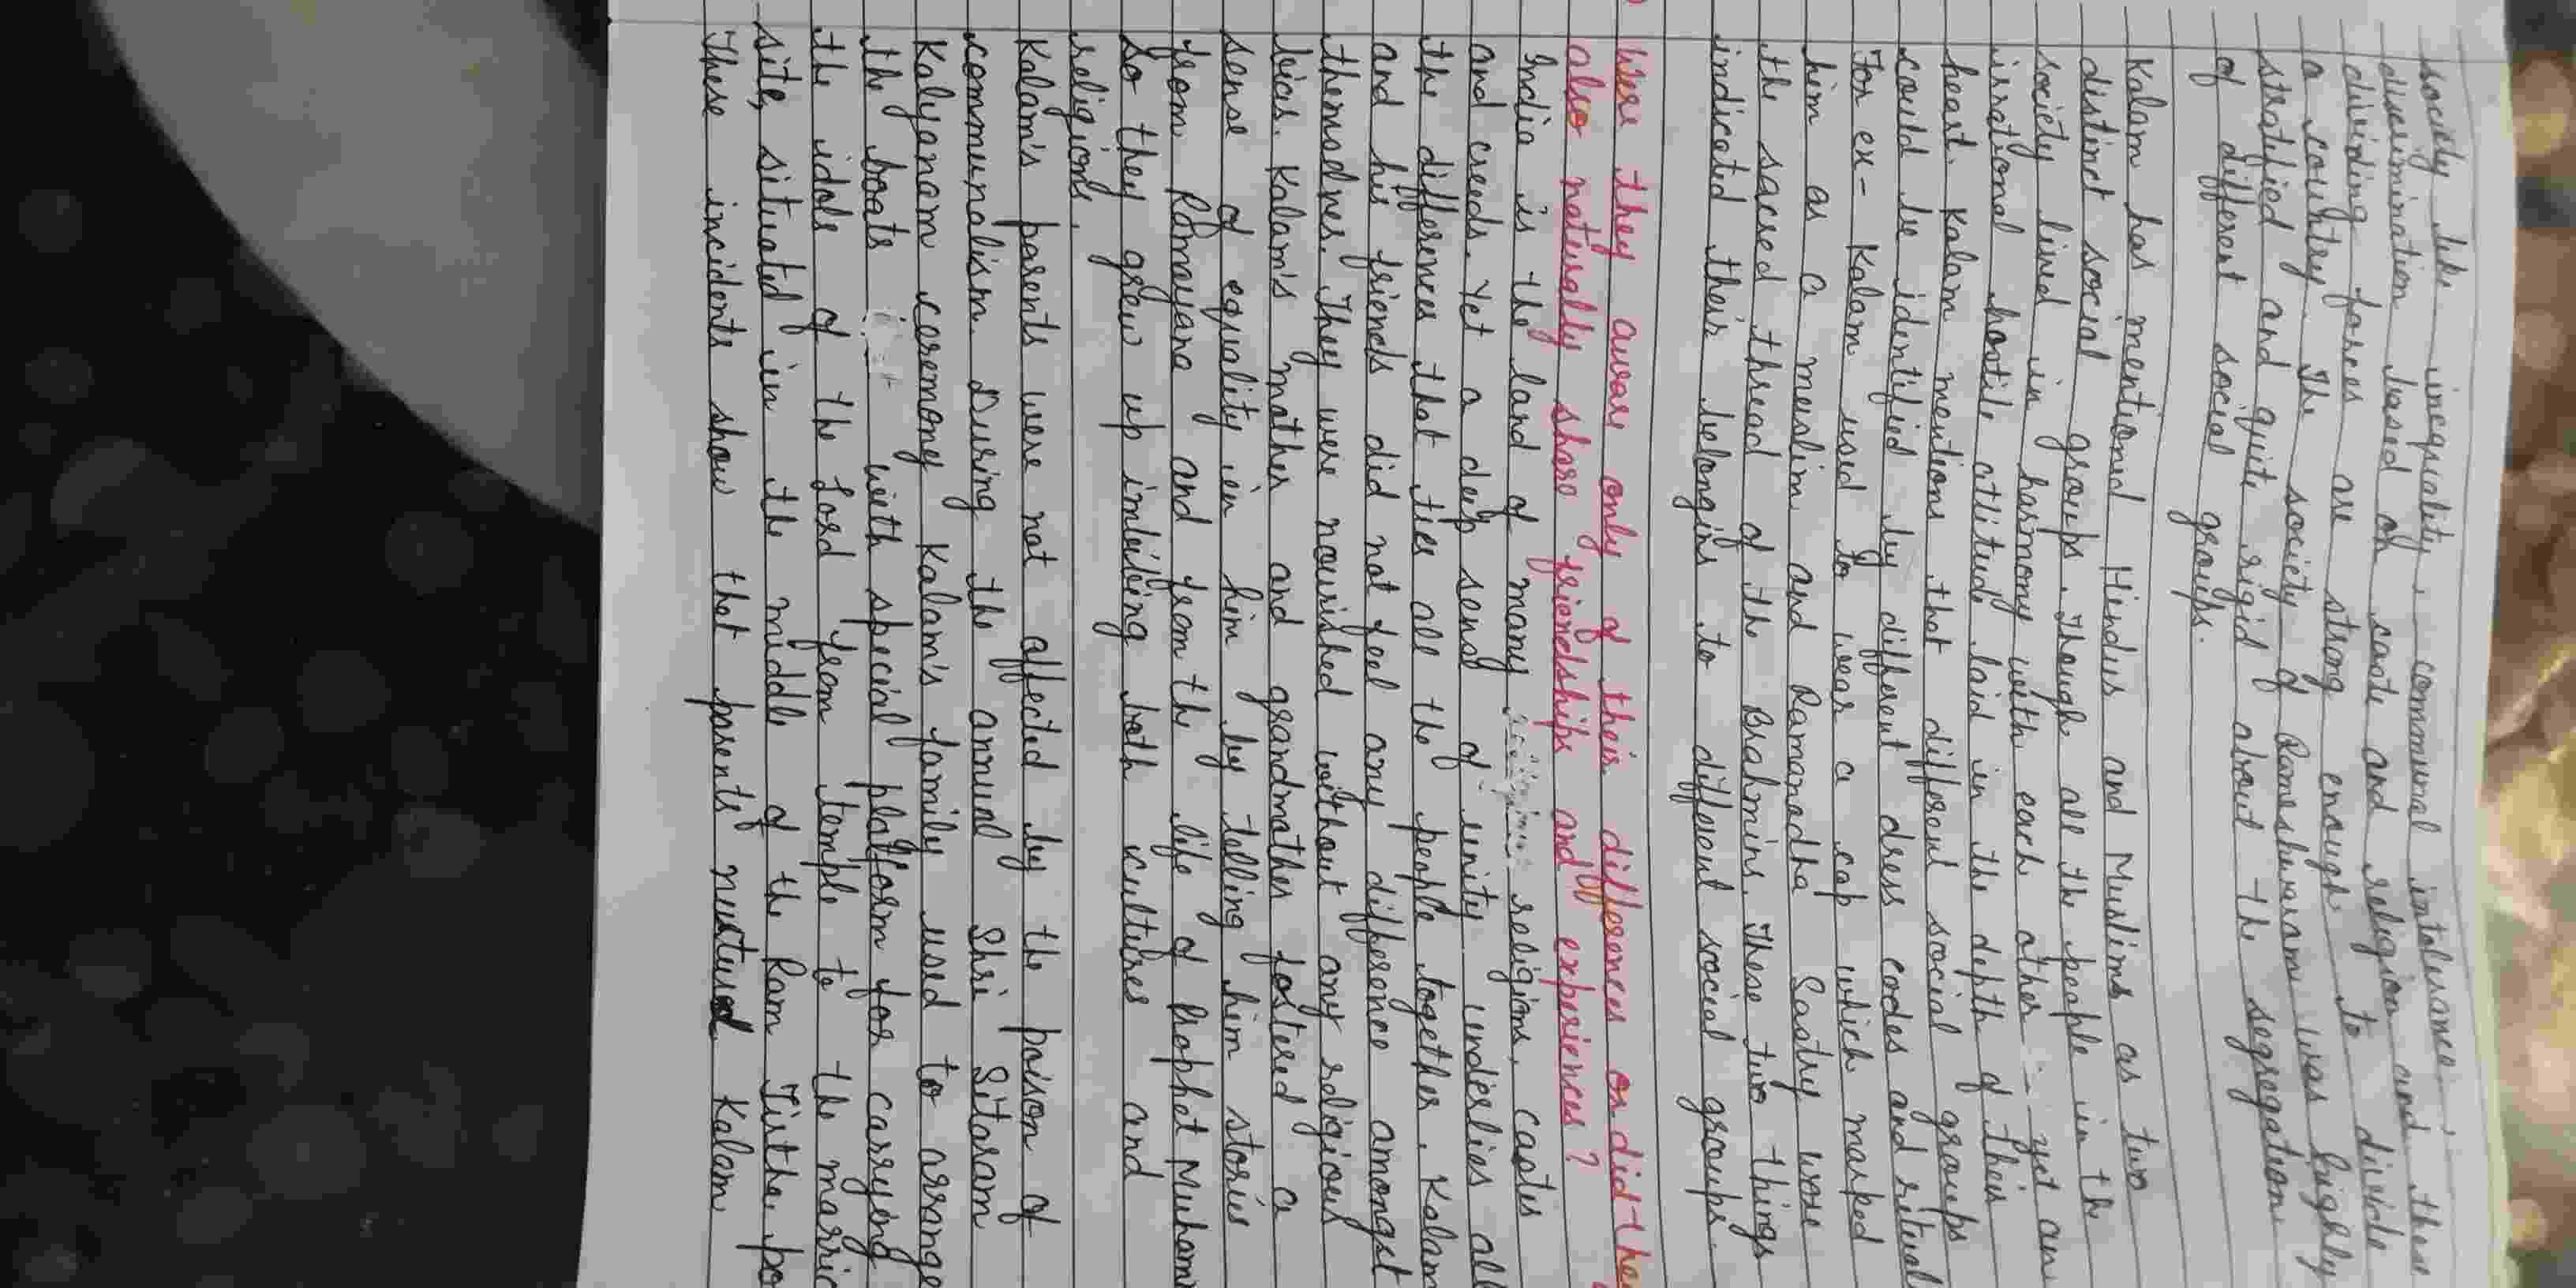 society like inequality, communal intolerance,
discrimination based on caste and religion and these
dividing forces are strong enough to divide
a country. The society of Rameshwaram was highly
stratified and quite rigid about the segregation
of different social groups.
Kalam has mentioned Hindus and Muslims as two
distinct social groups. Though all the people in the
society lived in harmony with each other yet an
irrational hostile attitude laid in the depth of their
heart. Kalam mentions that different social groups
could be identified by different dress codes and ritual
For ex- Kalam used to wear a cap which marked
him as a muslim and Ramanadha Sastry wore
the sacred thread of the Brahmins. These two things
indicated their belongins to diffrent social groups.
Were they aware only of their differences or did they
also naturally share friendships and experiences?
India is the land of many religions, castes
and creeds. Yet a deep sense of unity underlies all
the differences that ties all the people together. Kalam
and his friends did not feel any difference amongst
themselves. They were nourished without any religious
bias. Kalam's mother and grandmother fostered a
sense of equality in him by telling him stories
from Ramayana and from the life of Prophet Muham
So they grew up imbibing both cultures and
religions.
Kalam's parents were not affected by the poison of
communalism. During the annual Shri Sitaram
Kalyanam ceremony Kalam's family used to arrange
the boats with special platform for carrying
the idols of the Lord from temple to the marri
site, situated in the middle of the Ram Tirtha po
These incidents show that parents nurtured Kalam